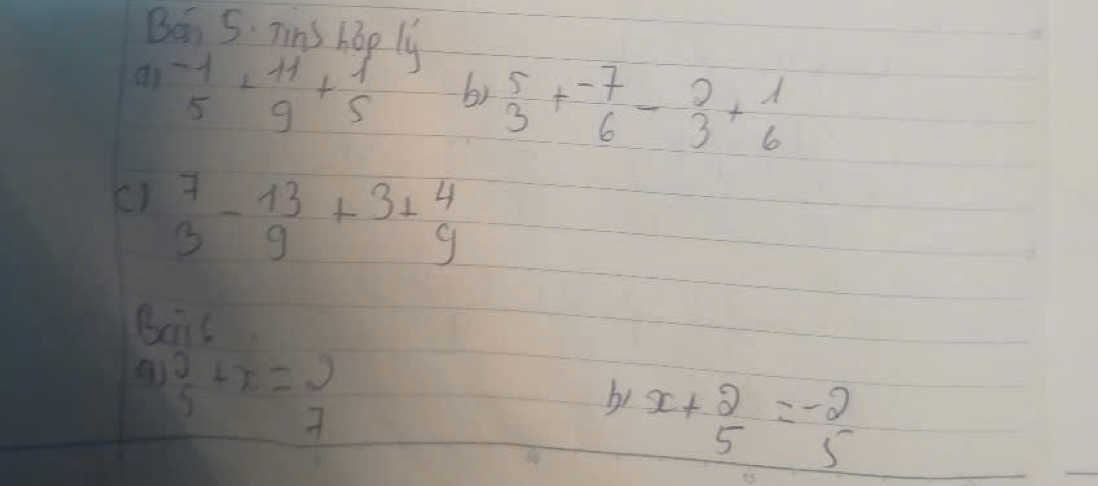 Bài 5. Tính hợp lý
a) -1/5 + 11/9 + 1/5 b) 5/3 + -7/6 - 2/3 + 1/6
c) 7/3 - 13/9 + 3 + 4/9
Bài 6
a) 2/5 + x = 2/7 b) x + 2/5 = -2/5